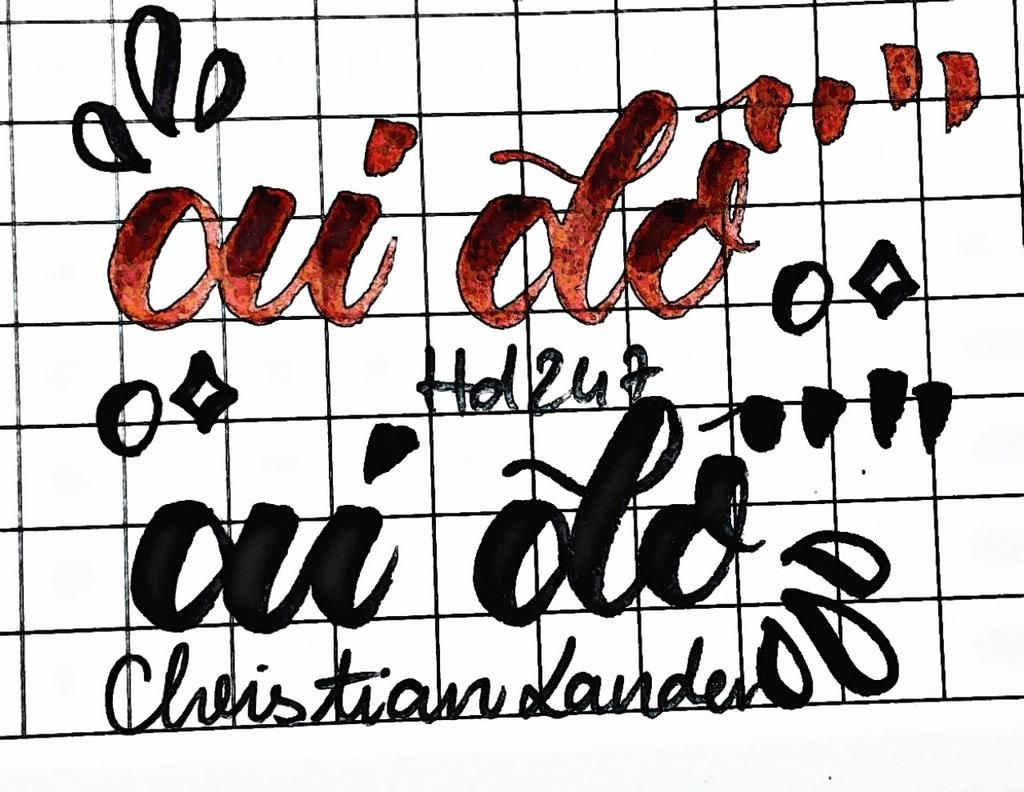 ai do
Hd247
ai do
Christian Lander